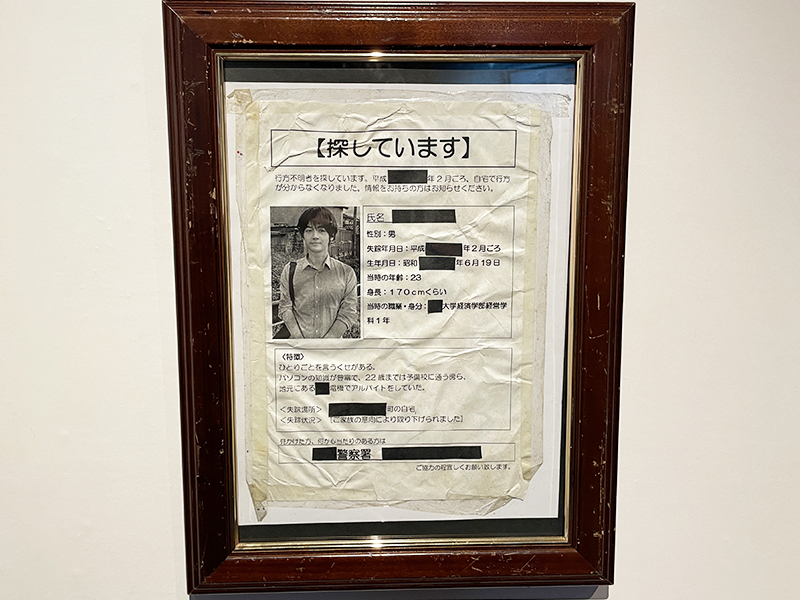 【探しています】
行方不明者を探しています。平成 年2月ごろ、自宅で行方
が分からなくなりました。情報をお持ちの方はお知らせください。
氏名
性別：男
失踪年月日：平成 年2月ごろ
生年月日：昭和 年6月19日
当時の年齢：23
身長：170cmくらい
当時の職業・身分： 大学経済学部経営学
科1年
〈特徴〉
ひとりごとを言うくせがある。
パソコンの知識が豊富で、22歳までは予備校に通う傍ら、
地元にある 電機でアルバイトをしていた。
＜失踪場所＞ 町の自宅
＜失踪状況＞ [ご家族の意向により取り下げられました]
見かけた方、何か心当たりのある方は
警察署
ご協力の程宜しくお願い致します。